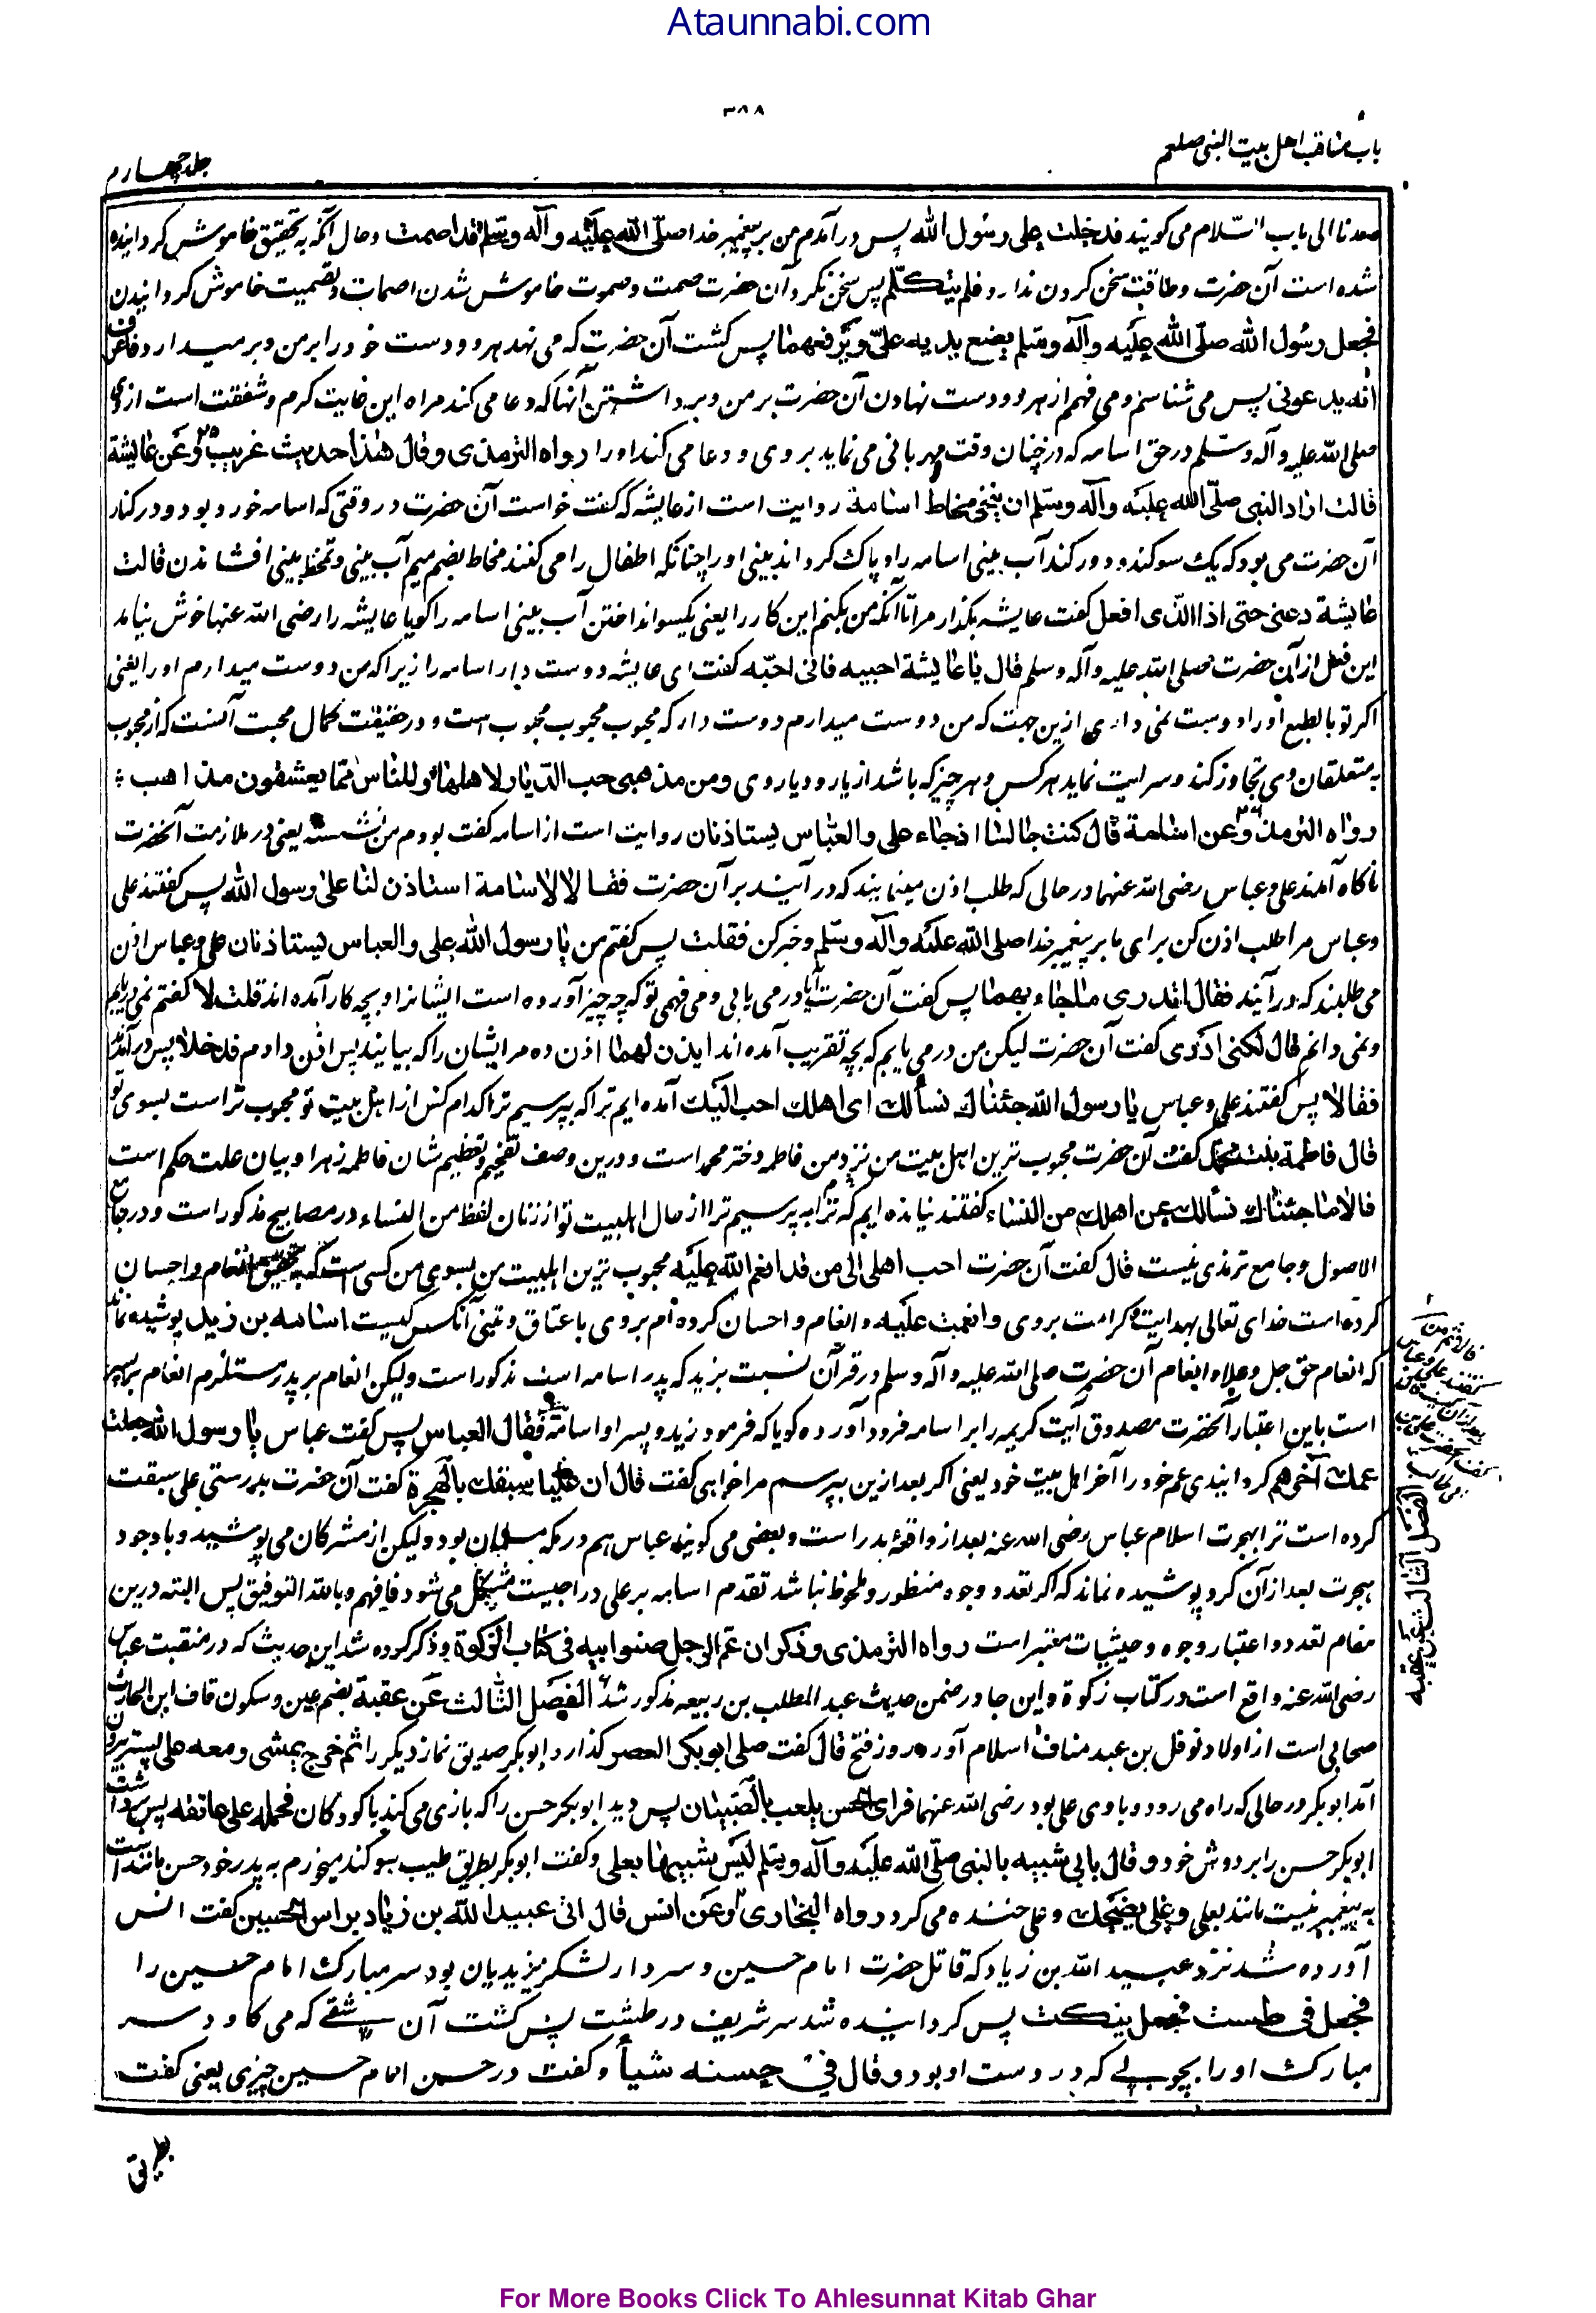 Ataunnabi.com
۳۸۸
باب مناقب اهل بيت النبى صلعم
جلد چهارم
صعدنا الى باب السّلام مى گویند فدخلت على رسول الله پس در آمدم من بر پیغمبر خدا صلّى الله عليه وآله وسلم قد اصمت وحال آنکه به تحقیق خاموش گردانیده
شده است آن حضرت و طاقت سخن کردن ندارد فلم يتكلّم پس سخن نکرد آن حضرت صمت و صموت خاموش شدن اصمات و تصمیت خاموش گردانیدن
فجعل رسول الله صلّى الله عليه وآله وسلم يضع يديه علىّ ويرفعهما پس گشت آن حضرت که می نهد هر دو دست خود را بر من و بر میدارد فاعرف
انه يدعولى پس می شناسم و می فهمم از هر دو دست نهادن آن حضرت بر من و برداشتن آنها که دعا می کند مرا ه این غایت کرم و شفقت است از وى
صلى الله عليه وآله وسلم در حق اسامه که در چنان وقت مهربانی می نماید بر وی و دعا می کند او را رواه الترمذى وقال هذا حديث غريب وعن عايشة
قالت اراد النبى صلّى الله عليه وآله وسلم ان ينحى مخاط اسامة روایت است از عایشه که گفت خواست آن حضرت در وقتی که اسامه خورد بود و در کنار
آن حضرت می بود که یک سو کند و دور کند آب بینی اسامه را و پاک گرداند بینی او را چنانکه اطفال را می کنند مخاط بضم میم آب بینی و تمخط بینی افشاندن قالت
عايشة دعنى حتى انا الذى افعل گفت عایشه بگذار مرا تا آنکه من بکنم این کار را یعنی یکسو انداختن آب بینی اسامه را گویا عایشه را رضی الله عنها خوش نیامد
این فعل از آن حضرت صلی الله علیه وآله وسلم قال يا عايشة احبيه فانى احبّه گفت ای عایشه دوست دار اسامه را زیرا که من دوست میدارم او را یعنی
اگر تو بالطبع او را دوست نمی داری ازین جهت که من دوست میدارم دوست دار که محبوب محبوب محبوب است و در حقیقت کمال محبت آنست که از محبوب
به متعلقان وی تجاوز کند و سرایت نماید هر کس و هر چیز که باشد از یار و دیار وی ومن مذهبى حب الديار لاهلها وللناس فيما يعشقون مذاهب
رواه الترمذى وعن اسامة قال كنت جالسا اذ جاء على والعباس يستاذنان روایت است از اسامه گفت بودم من نشسته یعنی در ملازمت آنحضرت
ناگاه آمدند علی و عباس رضی الله عنهما در حالی که طلب اذن مینمایند که در آیند بر آن حضرت فقالا لاسامة استاذن لنا على رسول الله پس گفتند علی
و عباس مرا طلب اذن کن برای ما بر پیغمبر خدا صلى الله عليه وآله وسلم و خبر کن فقلت پس گفتم من يا رسول الله على والعباس يستاذنان علی و عباس اذن
می طلبند که در آیند فقال اتدرى ما جاء بهما پس گفت آن حضرت آیا در می یابی و می فهمی تو که چه چیز آورده است ایشانرا و بچه کار آمده اند قلت لا گفتم نمی دریابم
و نمی دانم قال لكنى ادرى گفت آن حضرت لیکن من در می یابم که بچه تقریب آمده اند ايذن لهما اذن ده مر ایشان را که بیایند پس اذن دادم فدخلا پس در آمدند
فقالا پس گفتند علی و عباس يا رسول الله جئناك نسألك اى اهلك احب اليك آمده ایم ترا که بپرسیم ترا کدام کس از اهل بیت تو محبوب تر است بسوی تو
قال فاطمة بنت محمد گفت آن حضرت محبوب ترین اهل بیت من نزد من فاطمه دختر محمد است و درین وصف تفخیم و تعظیم شان فاطمه زهرا و بیان علت حکم است
قالا ما جئناك نسألك عن اهلك من النساء گفتند نیامده ایم که ترا به پرسیم ترا از حال اهلبیت تو از زنان لفظ من النساء در مصابیح مذکور است و در جامع
الاصول و جامع ترمذی نیست قال گفت آن حضرت احب اهلى الى من قد انعم الله عليه محبوب ترین اهلبیت من بسوی من کسی است که به تحقیق انعام و احسان
کرده است خدای تعالی بهدایت و کرامت بر وی وانعمت عليه و انعام و احسان کرده ام بر وی باعتاق و تبنی آنکس کیست اسامه بن زيد پوشیده نماند
که انعام حق جل و علا و انعام آن حضرت صلی الله علیه وآله وسلم در قرآن نسبت بزید که پدر اسامه است مذکور است و لیکن انعام بر پدر مستلزم انعام بر پسر
است باین اعتبار آنحضرت مصدوق آیت کریمه را بر اسامه فرود آورده گویا که فرمود زید و پسر او اسامه فقال العباس پس گفت عباس يا رسول الله جعلت
عمك آخرهم گردانیدی عم خود را آخر اهل بیت خود یعنی اگر بعد ازین بپرسم مرا خواهی گفت قال ان عليا سبقك بالهجرة گفت آن حضرت بدرستی علی سبقت
کرده است ترا بهجرت اسلام عباس رضی الله عنه بعد از واقعۀ بدر است و بعضی می گویند عباس هم در مکه مسلمان بود و لیکن از مشرکان می پوشید و با وجود
هجرت بعد از آن کرد پوشیده نماند که اگر تعدد وجوه منظور و ملحوظ نباشد تقدم اسامه بر علی در احبیت مشکل می شود فافهم وبالله التوفیق پس البته درین
مقام تعدد و اعتبار وجوه و حیثیات معتبر است رواه الترمذى وذكر ان عم الرجل صنو ابيه فى كتاب الزكوة و ذکر کرده شد این حدیث که در منقبت عباس
رضی الله عنه واقع است در کتاب زکوة و این جا در ضمن حدیث عبد المطلب بن ربیعه مذکور شد الفصل الثالث عن عقبة بضم عین و سکون قاف ابن الحارث
صحابی است از اولاد نوفل بن عبد مناف اسلام آورد روز فتح قال گفت صلى ابو بكر العصر گذارد ابو بکر صدیق نماز دیگر را ثم خرج يمشى ومعه على پستر بیرون
آمد ابو بکر در حالی که راه می رود و با وی علی بود رضی الله عنهما فراى الحسن يلعب بالصبيان پس دید ابو بکر حسن را که بازی می کند با کودکان فحمله على عاتقه پس برداشت
ابو بکر حسن را بر دوش خود وقال بابى شبيه بالنبى صلّى الله عليه وآله وسلم ليس شبيها بعلى و گفت ابو بکر بطریق طیب سوگند میخورم به پدر خود حسن مانند است
به پیغمبر نیست مانند بعلی وعلى يضحك و علی خنده می کرد رواه البخارى وعن انس قال اتى عبيد الله بن زياد براس الحسين گفت انس
آورده شد نزد عبید الله بن زیاد که قاتل حضرت امام حسین و سردار لشکر یزیدیان بود سر مبارک امام حسین را
فجعل فى طست فجعل ينكت پس گردانیده شد سر شریف در طشت پس گشت آن شقی که می کاود سر
مبارک او را بچوبی که در دست او بود وقال فى حسنه شيأ و گفت در حسن امام حسین چیزی یعنی گفت
الفصل الثالث عن عقبه
بطریق
For More Books Click To Ahlesunnat Kitab Ghar